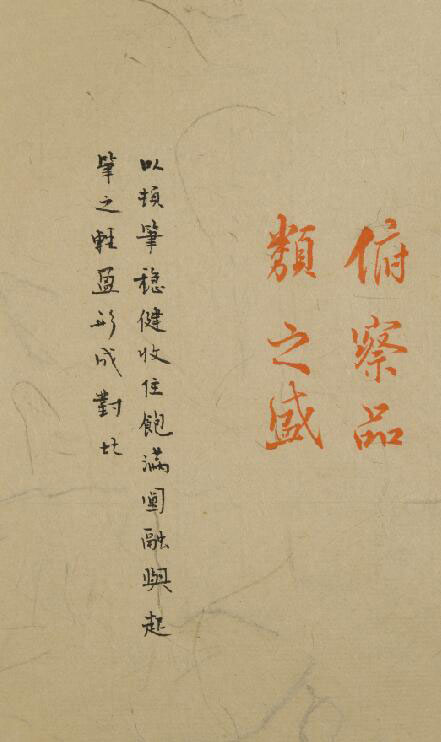 俯察品
類之盛
以頓筆穩健收住飽滿圓融與起
筆之輕盈形成對比